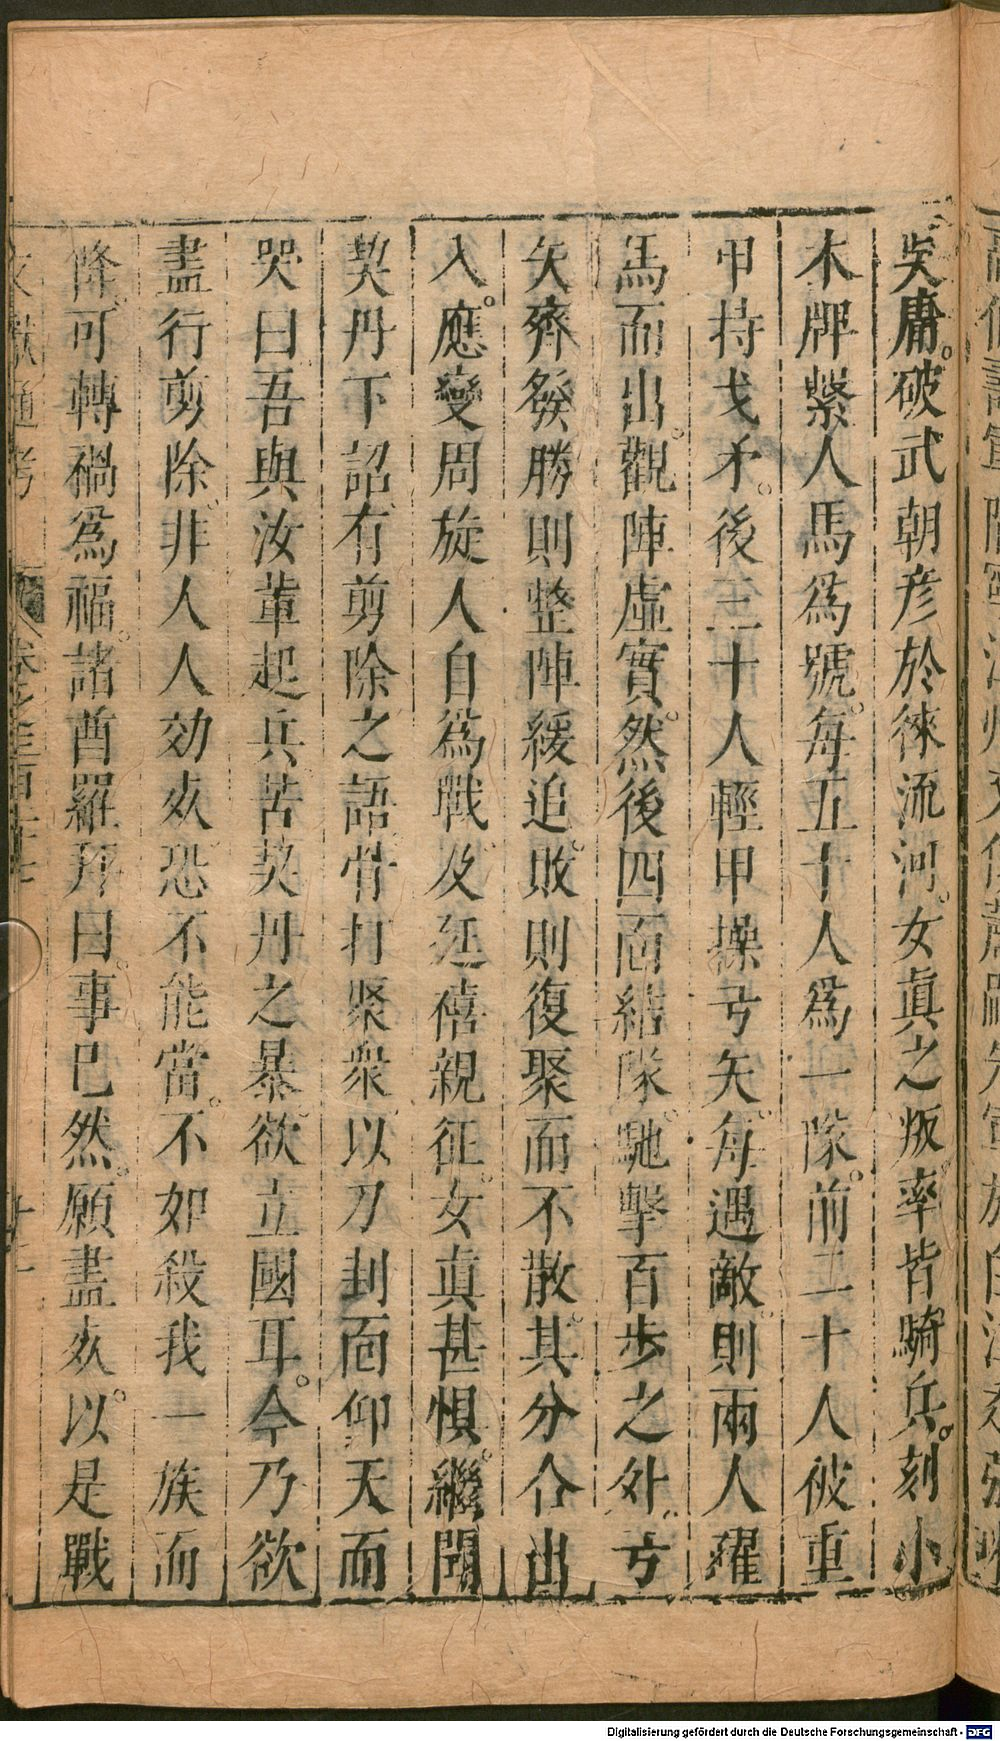 吳庸破武朝彥於徠流河女真之叛率皆騎兵刻小
木牌繫人馬爲號每五十人爲一隊前二十人被重
甲持戈矛後三十人輕甲操弓矢每遇敵則兩人躍
馬而出觀陣虛實然後四面結隊馳擊百步之外弓
矢齊發勝則整陣緩追敗則復聚而不散其分合出
入應變周旋人自爲戰及延禧親征女真甚懼繼聞
契丹下詔有剪除之語骨打聚衆以刀剺面仰天而
哭曰吾與汝輩起兵苦契丹之暴欲立國耳今乃欲
盡行剪除非人人効死恐不能當不如殺我一族而
降可轉禍爲福諸酋羅拜曰事已然願盡死以是戰
文獻通考
Digitalisierung gefördert durch die Deutsche Forschungsgemeinschaft - DFG